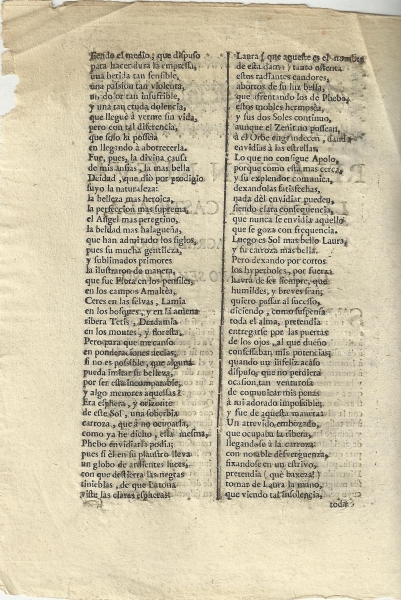 siendo el medio; que dispuso
para hacer dura la empresa,
una herida tan sensible,
una passion tan violenta,
un dolor tan insufrible,
y una tan cruda dolencia,
que lleguè à verme sin vida,
pero con tal diferencia,
que solo la posseìa
en llegando à aborrecerla.
Fue, pues, la divina causa
de mis ansias, la mas bella
Deidad, que diò por prodigio
suyo la naturaleza:
la belleza mas heroica,
la perfeccion mas suprema,
el Angel mas peregrino,
la beldad mas halagueña,
que han admitado los siglos,
pues su mucha gentileza,
y sublimados primores
la ilustraron de manera,
que fue Flora en los pensiles,
en los campos Amaltèa,
Ceres en las selvas, Lamia
en los bosques, y en la amena
ribera Tetis, Deidamia
en los montes, y floresta.
Pero para que me canso
en ponderaciones necias,
si no es possible, que alguna
pueda imitar su belleza,
por ser esta incomparable,
y algo menores aquellas?
Era esphera, y orizonte
de este Sol, una soberbia
carroza, que à no ocuparla,
como ya he dicho, esta mesma,
Phebo envidiarla podia;
pues si èl en su plaustro lleva
un globo de ardientes luces,
con que destierra las negras
tinieblas, de que Latona
viste las claras espheras:
Laura (que aqueste es el nombre
de esta dama) tanto ostenta
estos radiantes candores,
abortos de su luz bella,
que afrentando los de Phebo,
estos mobles hermosea,
y sus dos Soles continuo,
aunque el Zenit no possean,
à el Orbe engrandecen, dando
envidias à las estrellas.
Lo que no consigue Apolo,
porque como esta mas cerca,
y su explendor comunica,
dexandolas satisfechas,
nada dèl envidiar pueden,
siendo clara consequencia,
que nunca se envidia aquello
que se goza con frequencia.
Luego es Sol mas bello Laura,
y su carroza mas bella.
Pero dexando por cortos
los hyperboles, por fuerza
havrà de ser siempre, que
humildes, y breves sean;
quiero passar al sucesso,
diciendo, como suspensa
toda el alma, pretendia
entregarse por las puertas
de los ojos, al que dueño
confessaban mis potencias;
quando un infeliz acaso
dispuso, que no perdiera
ocasion tan venturosa
de comunicar mis penas
à mi adorado impossible;
y fue de aquesta manera:
Un atrevido embozado,
que ocupaba la ribera,
llegandose à la carroza
con notable desverguenza,
fixandose en un estrivo,
pretendia (què baxeza!)
tomar de Laura la mano,
que viendo tal insolencia,
toda